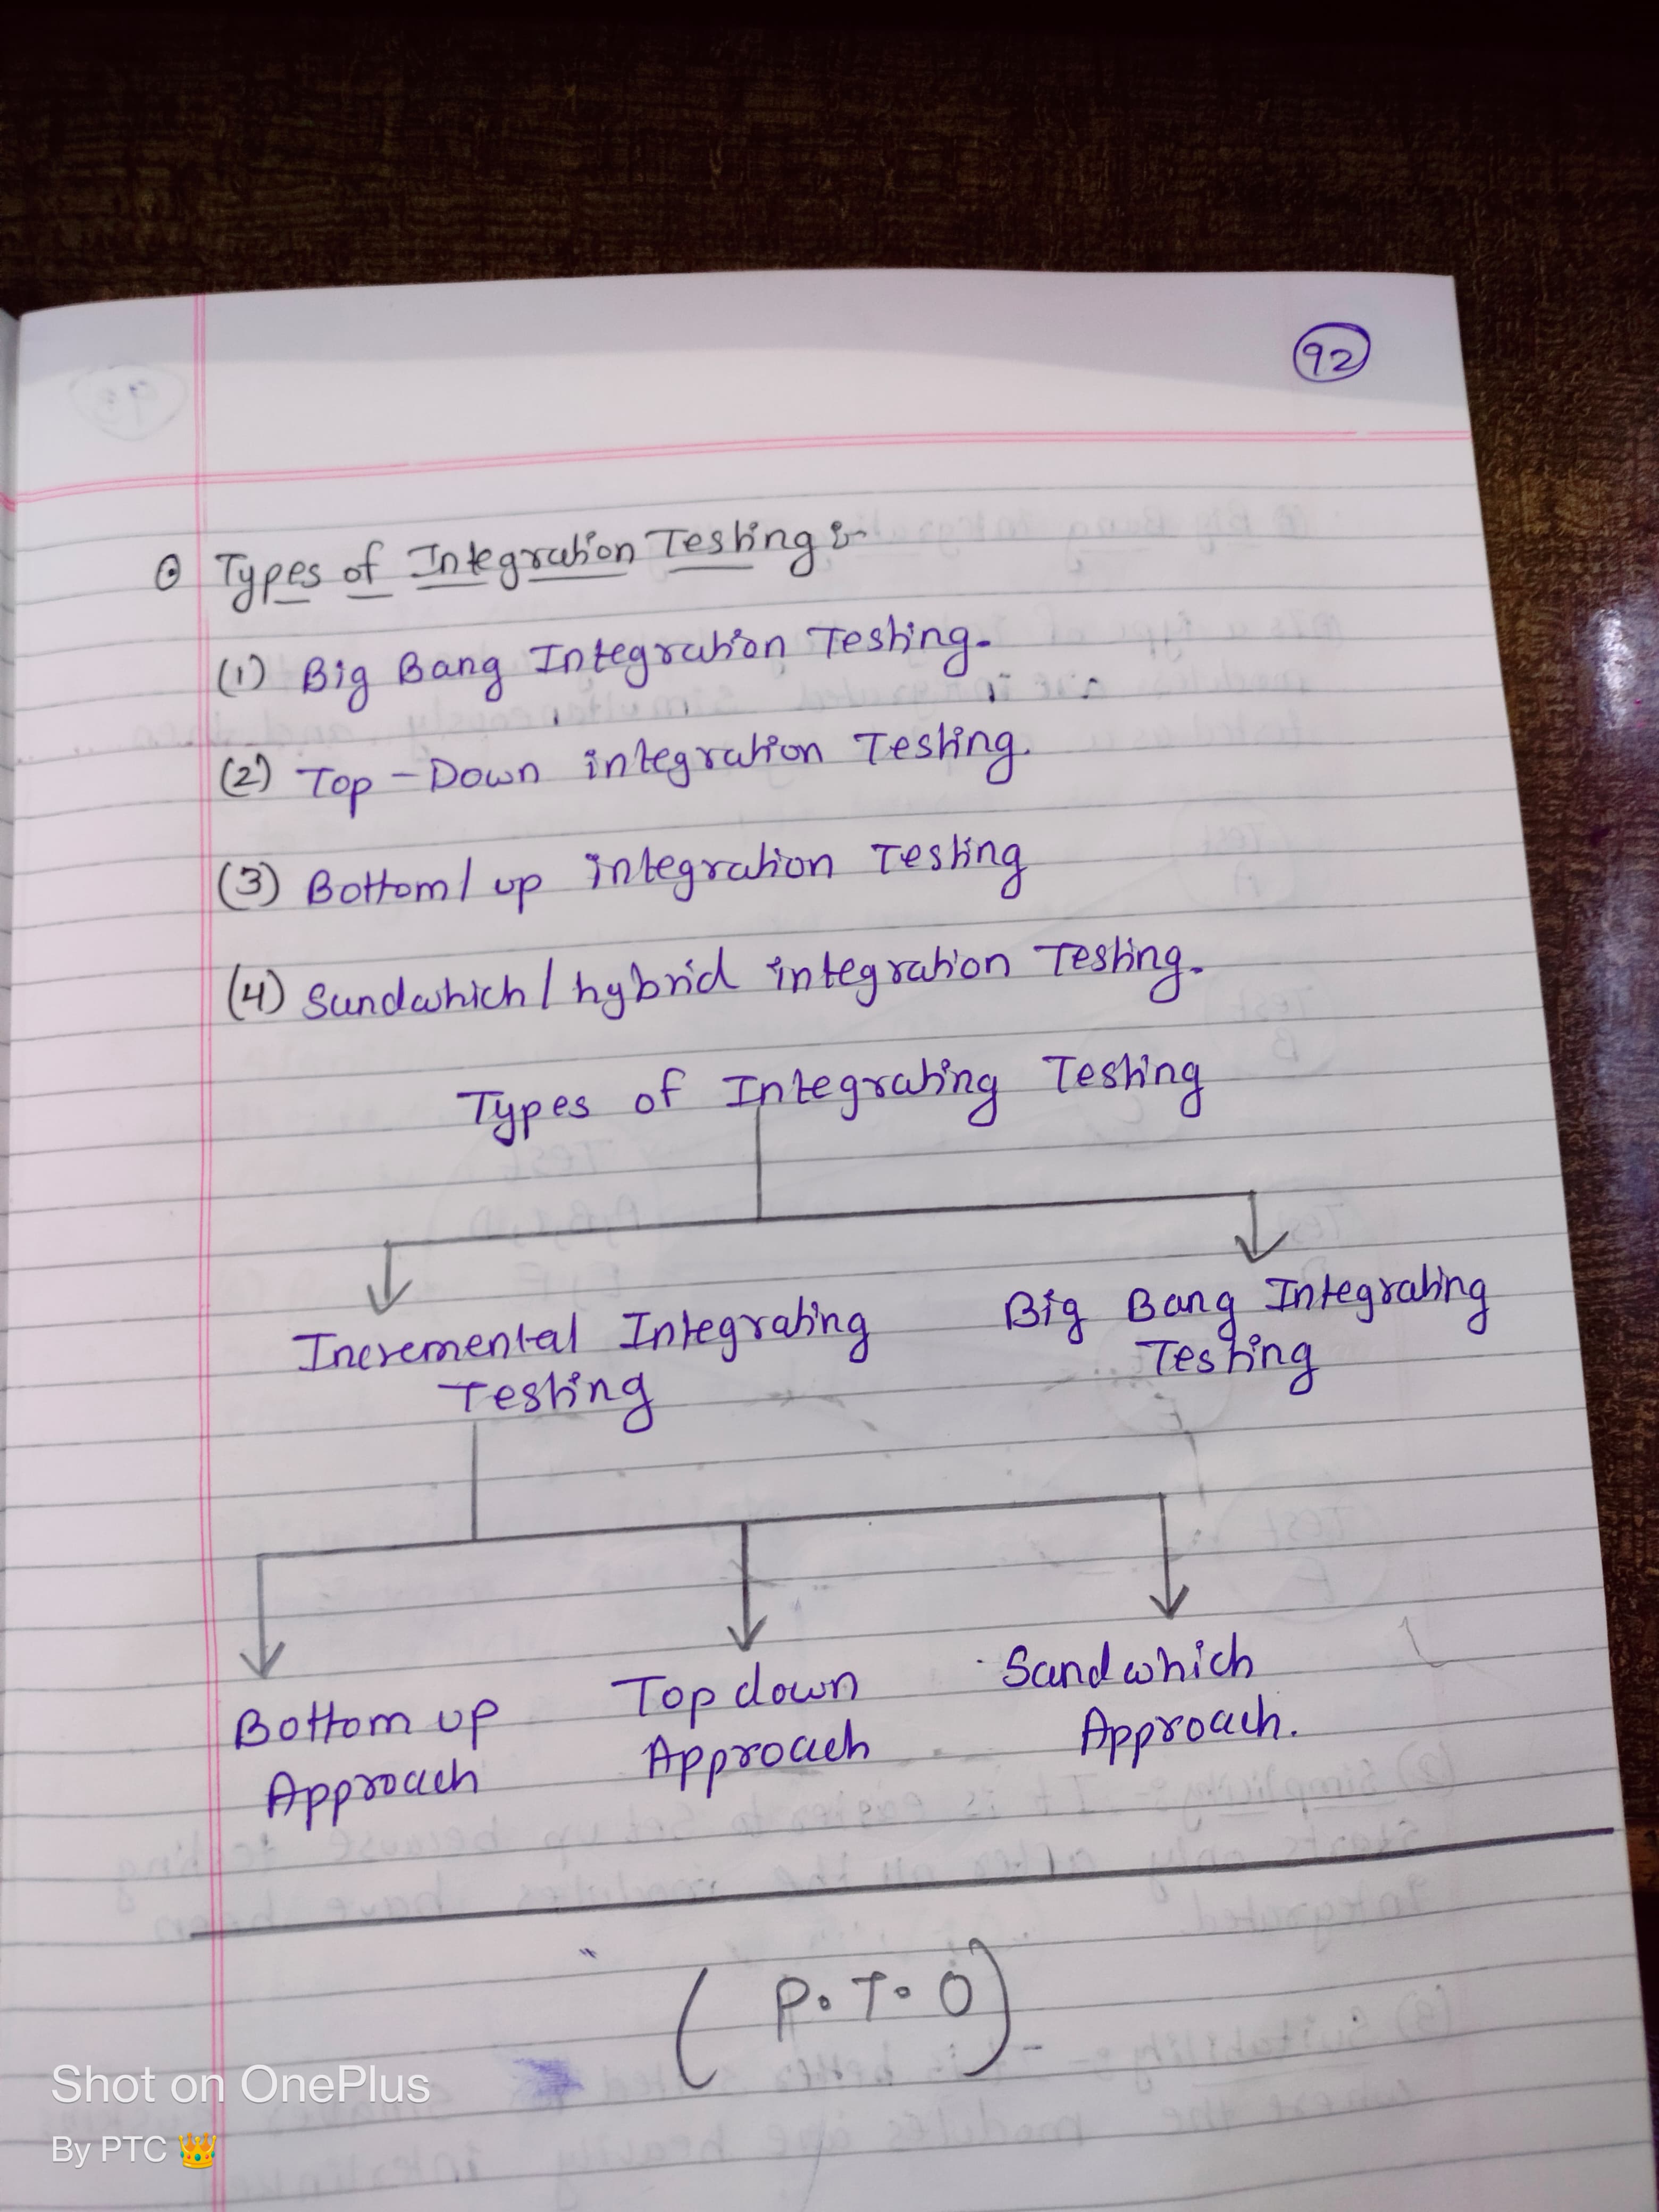 92
Types of Integration Testing :-
(1) Big Bang Integration Testing.
(2) Top - Down integration Testing.
(3) Bottom / up integration Testing
(4) Sandwhich / hybrid integration Testing.
Types of Integrating Testing
Incremental Integrating Testing
Big Bang Integrating Testing
Bottom up Approach
Top down Approach
Sandwhich Approach.
(P.T.O)
Shot on OnePlus
By PTC 👑